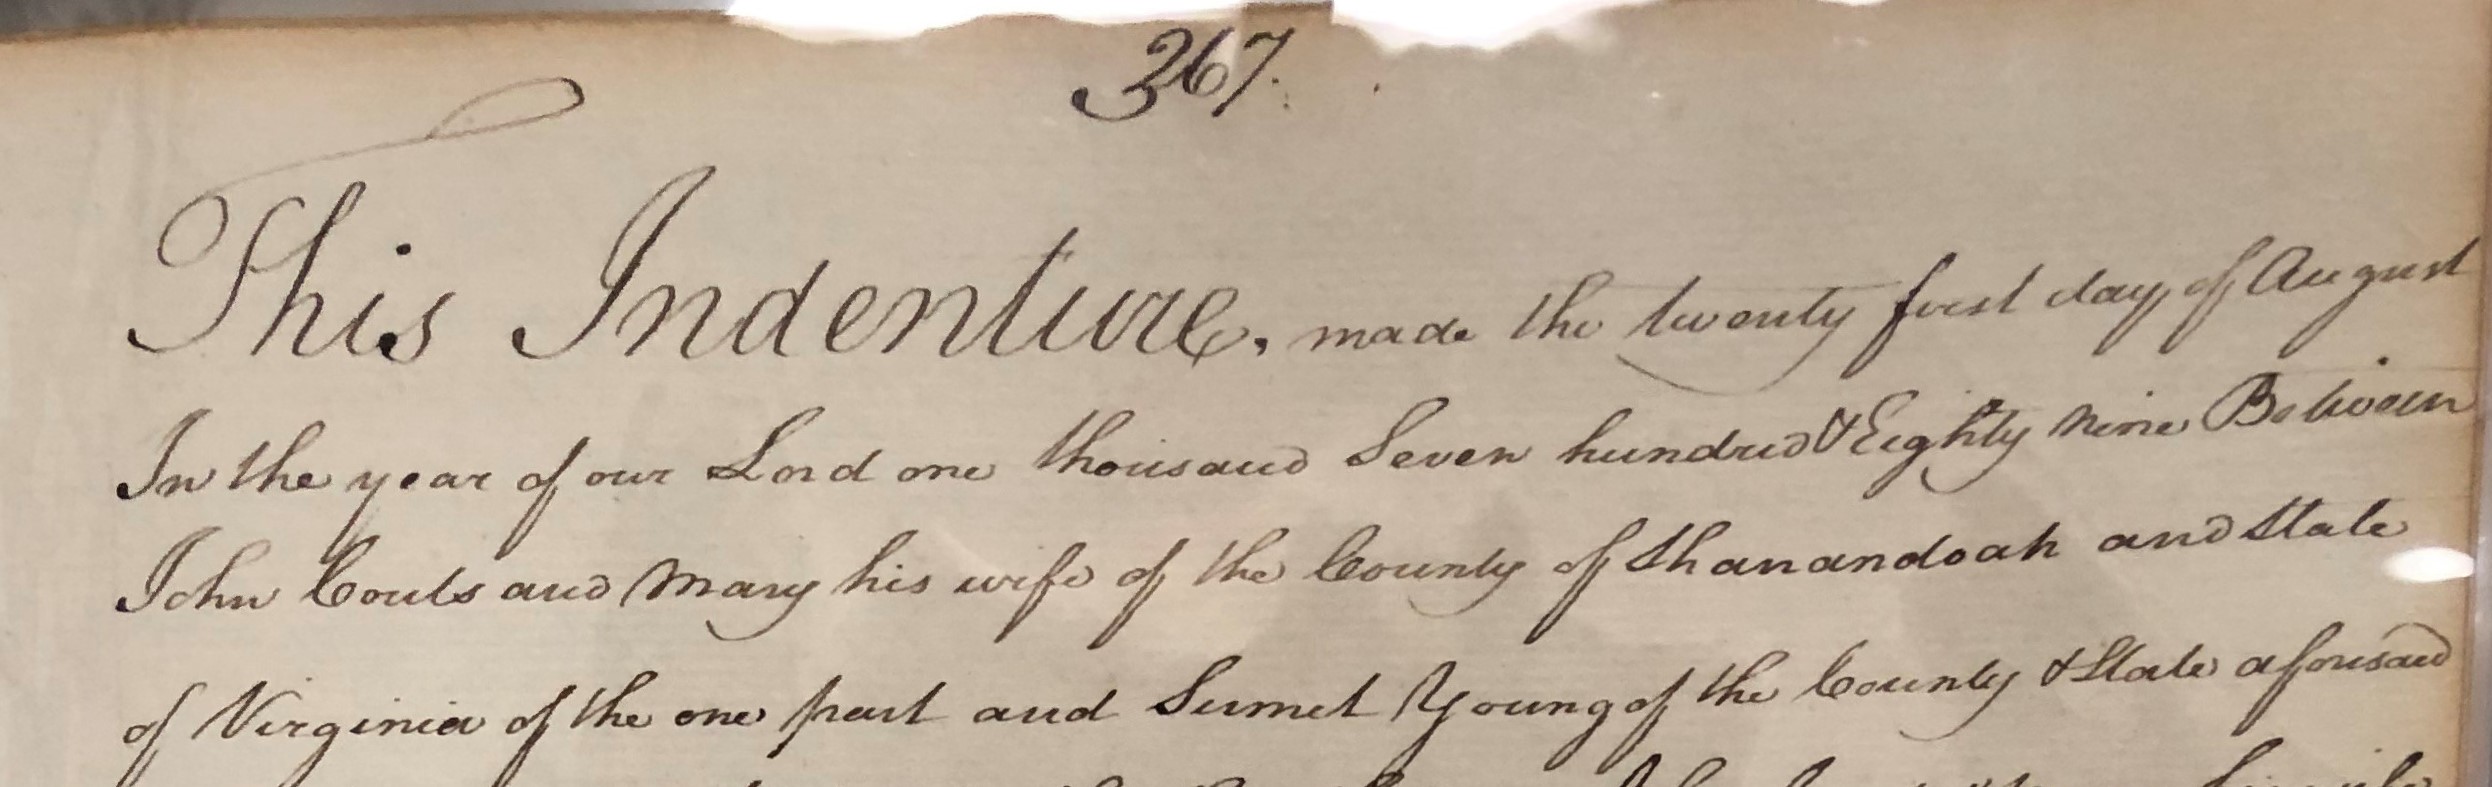 367.
This Indenture, made the twenty first day of August
In the year of our Lord one thousand Seven hundred & Eighty Nine Between
John Couts and Mary his wife of the County of Shanandoah and State
of Virginia of the one part and Young of the County & State aforesaid